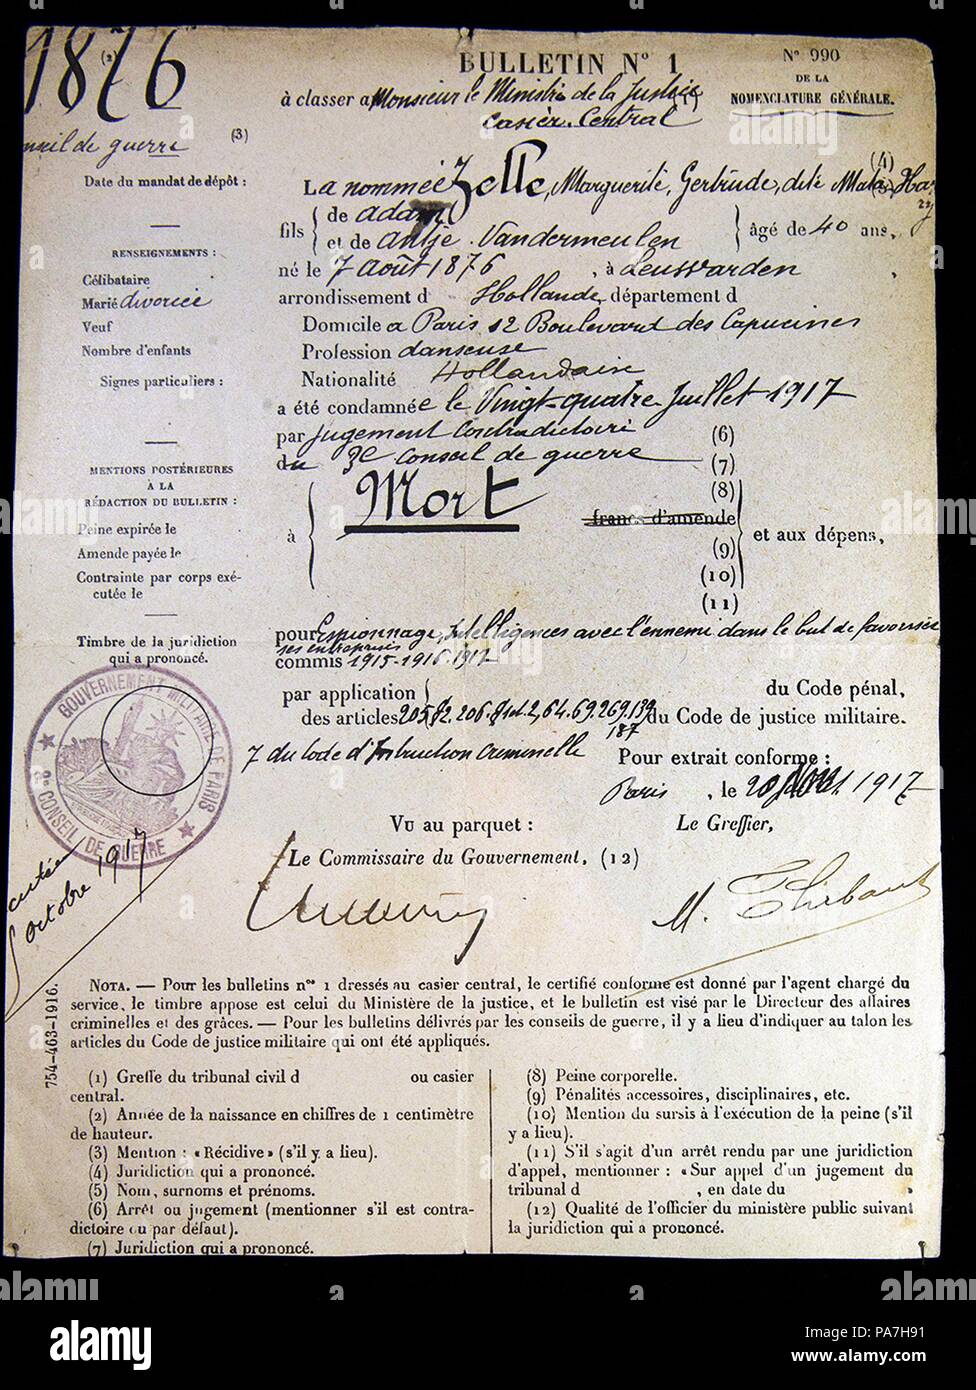 1876
(2)
BULLETIN Nº 1
Nº 990
DE LA
NOMENCLATURE GÉNÉRALE.
à classer a Monsieur le Ministre de la Justice (1)
Casier Central
de guerre (3)
(4)
Date du mandat de dépôt :
La nommée Zelle, Marguerite, Gertrude, dite Mata Hary
fils { de Adam
et de Antje Vandermeulen } âgé de 40 ans,
né le 7 août 1876 , à Leuswarden ,
arrondissement d Hollande, département d
Domicile a Paris 12 Boulevard des Capucines
Profession danseuse
Nationalité Hollandaise
a été condamnée le Vingt-quatre Juillet 1917
par jugement Contradictoire (6)
du 3e Conseil de guerre (7)
à { Mort (8)
francs d'amende
(9)
(10)
(11) } et aux dépens,
RENSEIGNEMENTS :
Célibataire
Marié divorcée
Veuf
Nombre d'enfants
Signes particuliers :
MENTIONS POSTÉRIEURES
A LA
RÉDACTION DU BULLETIN :
Peine expirée le
Amende payée le
Contrainte par corps exé-
cutée le
Timbre de la juridiction
qui a prononcé.
pour Espionnage, Intelligences avec l'ennemi dans le but de favoriser
ses entreprises
commis 1915-1916-1917
par application {
des articles 205 §2. 206. 64. 69. 269. 139
187
du Code pénal,
du Code de justice militaire.
7 du Code d'Instruction Criminelle
Pour extrait conforme :
Paris , le 20 1917
GOUVERNEMENT MILITAIRE DE PARIS
CONSEIL DE GUERRE
octobre 1917
Vu au parquet :
Le Greffier,
Le Commissaire du Gouvernement, (12)
M. Thibaut
754-463-1916.
NOTA. — Pour les bulletins nos 1 dressés au casier central, le certifié conforme est donné par l'agent chargé du
service, le timbre apposé est celui du Ministère de la justice, et le bulletin est visé par le Directeur des affaires
criminelles et des grâces. — Pour les bulletins délivrés par les conseils de guerre, il y a lieu d'indiquer au talon les
articles du Code de justice militaire qui ont été appliqués.
(1) Greffe du tribunal civil d ou casier
central.
(2) Année de la naissance en chiffres de 1 centimètre
de hauteur.
(3) Mention : « Récidive » (s'il y a lieu).
(4) Juridiction qui a prononcé.
(5) Nom, surnoms et prénoms.
(6) Arrêt ou jugement (mentionner s'il est contra-
dictoire ou par défaut).
(7) Juridiction qui a prononcé.
(8) Peine corporelle.
(9) Pénalités accessoires, disciplinaires, etc.
(10) Mention du sursis à l'exécution de la peine (s'il
y a lieu).
(11) S'il s'agit d'un arrêt rendu par une juridiction
d'appel, mentionner : « Sur appel d'un jugement du
tribunal d , en date du »
(12) Qualité de l'officier du ministère public suivant
la juridiction qui a prononcé.
alamy
Image ID: PA7H91
www.alamy.com